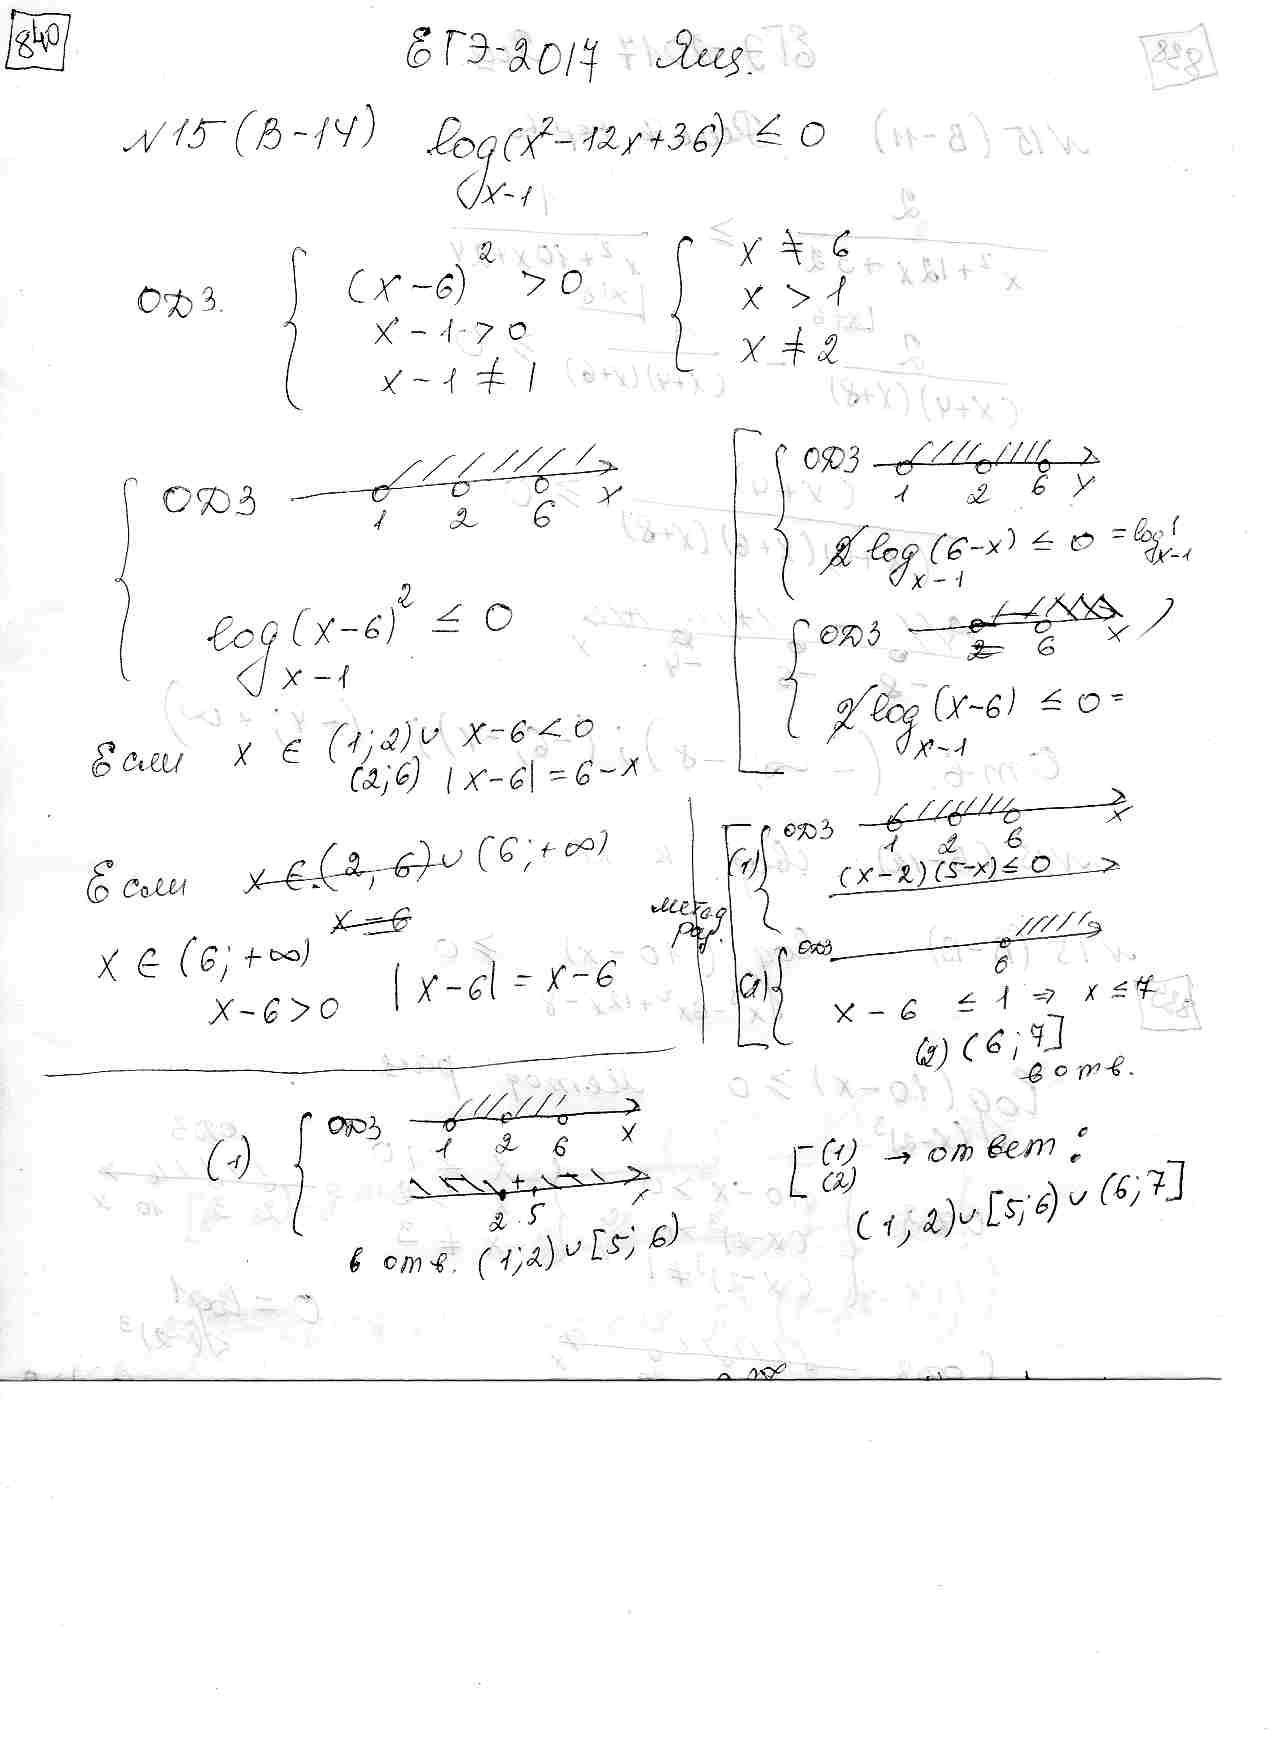 840
ЕГЭ-2017 Ящ.
N15 (В-14) log_{x-1}(x²-12x+36) ≤ 0
ОДЗ. { (x-6)² > 0
x-1 > 0
x-1 ≠ 1
{ x ≠ 6
x > 1
x ≠ 2
{ ОДЗ 1 2 6 x
log_{x-1}(x-6)² ≤ 0
Если x ∈ (1; 2) ∪ (2; 6) x-6 < 0
|x-6| = 6-x
Если x ∈ (2, 6) ∪ (6; +∞)
x = 6
x ∈ (6; +∞)
x-6 > 0 |x-6| = x-6
[ { ОДЗ 1 2 6 x
2 log_{x-1}(6-x) ≤ 0 = log_{x-1} 1
{ ОДЗ 2 6 x
2 log_{x-1}(x-6) ≤ 0 =
метод рац.
[ (1) { ОДЗ 1 2 6 x
(x-2)(5-x) ≤ 0
(2) { ОДЗ 6
x-6 ≤ 1 ⇒ x ≤ 7
(2) (6; 7]
в отв.
(1) { ОДЗ 1 2 6 x
+
2 5
в отв. (1; 2) ∪ [5; 6)
[ (1)
(2) → ответ:
(1; 2) ∪ [5; 6) ∪ (6; 7]